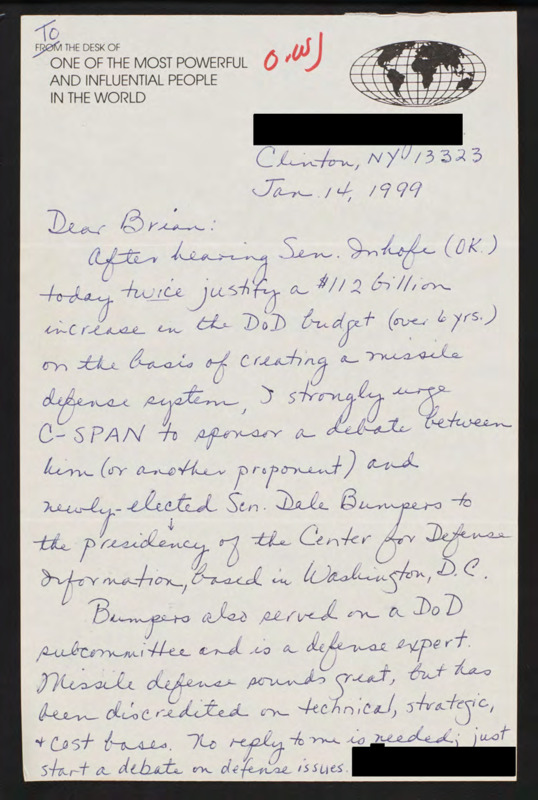 To
FROM THE DESK OF
ONE OF THE MOST POWERFUL
AND INFLUENTIAL PEOPLE
IN THE WORLD
Clinton, NY 13323
Jan. 14, 1999
Dear Brian:
After hearing Sen. Inhofe (OK.)
today twice justify a $112 billion
increase in the DoD budget (over 6 yrs.)
on the basis of creating a missile
defense system, I strongly urge
C-SPAN to sponsor a debate between
him (or another proponent) and
newly-elected Sen. Dale Bumpers to
the presidency of the Center for Defense
Information, based in Washington, D.C.
Bumpers also served on a DoD
subcommittee and is a defense expert.
Missile defense sounds great, but has
been discredited on technical, strategic,
+ cost bases. No reply to me is needed; just
start a debate on defense issues.